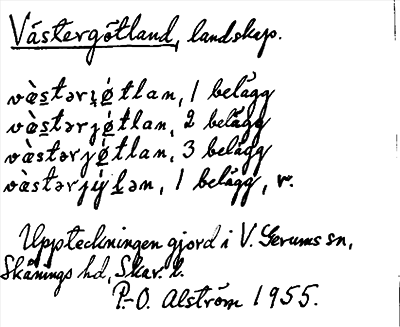 Västergötland, landskap.
västərjötlan, 1 belägg
västərjötlan, 2 belägg
västərjötlan, 3 belägg
västərjýḷən, 1 belägg, v.
Uppteckningen gjord i V. Gerums sn,
Skånings hd, Skar. l.
P.-O. Alström 1955.